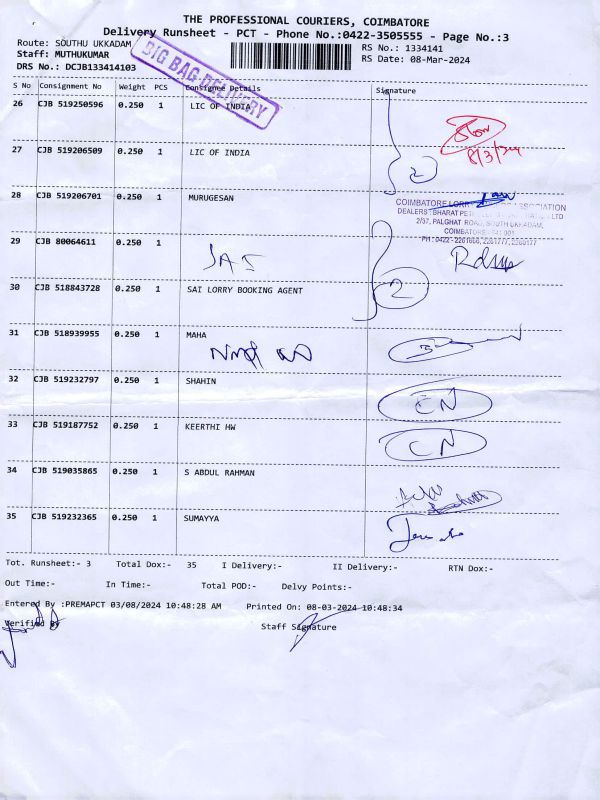 THE PROFESSIONAL COURIERS, COIMBATORE
Delivery Runsheet - PCT - Phone No.:0422-3505555 - Page No.:3
Route: SOUTHU UKKADAM
RS No.: 1334141
Staff: MUTHUKUMAR
RS Date: 08-Mar-2024
DRS No.: DCJB133414103
BIG BAG DELIVERY
S No Consignment No Weight PCS Consignee Details Signature
26 CJB 519250596 0.250 1 LIC OF INDIA
8/3/24
27 CJB 519206509 0.250 1 LIC OF INDIA
2
28 CJB 519206701 0.250 1 MURUGESAN
COIMBATORE LORRY ASSOCIATION
DEALERS: BHARAT LTD
2/37, PALGHAT ROAD, SOUTH UKKADAM,
COIMBATORE - 641 001
PH: 0422 - 2261666, 2261777, 2260177
29 CJB 80064611 0.250 1
30 CJB 518843728 0.250 1 SAI LORRY BOOKING AGENT
2
31 CJB 518939955 0.250 1 MAHA
32 CJB 519232797 0.250 1 SHAHIN
CN
33 CJB 519187752 0.250 1 KEERTHI HW
CN
34 CJB 519035865 0.250 1 S ABDUL RAHMAN
35 CJB 519232365 0.250 1 SUMAYYA
Tot. Runsheet:- 3 Total Dox:- 35 I Delivery:- II Delivery:- RTN Dox:-
Out Time:- In Time:- Total POD:- Delvy Points:-
Entered By :PREMAPCT 03/08/2024 10:48:28 AM Printed On: 08-03-2024 10:48:34
Verified By Staff Signature